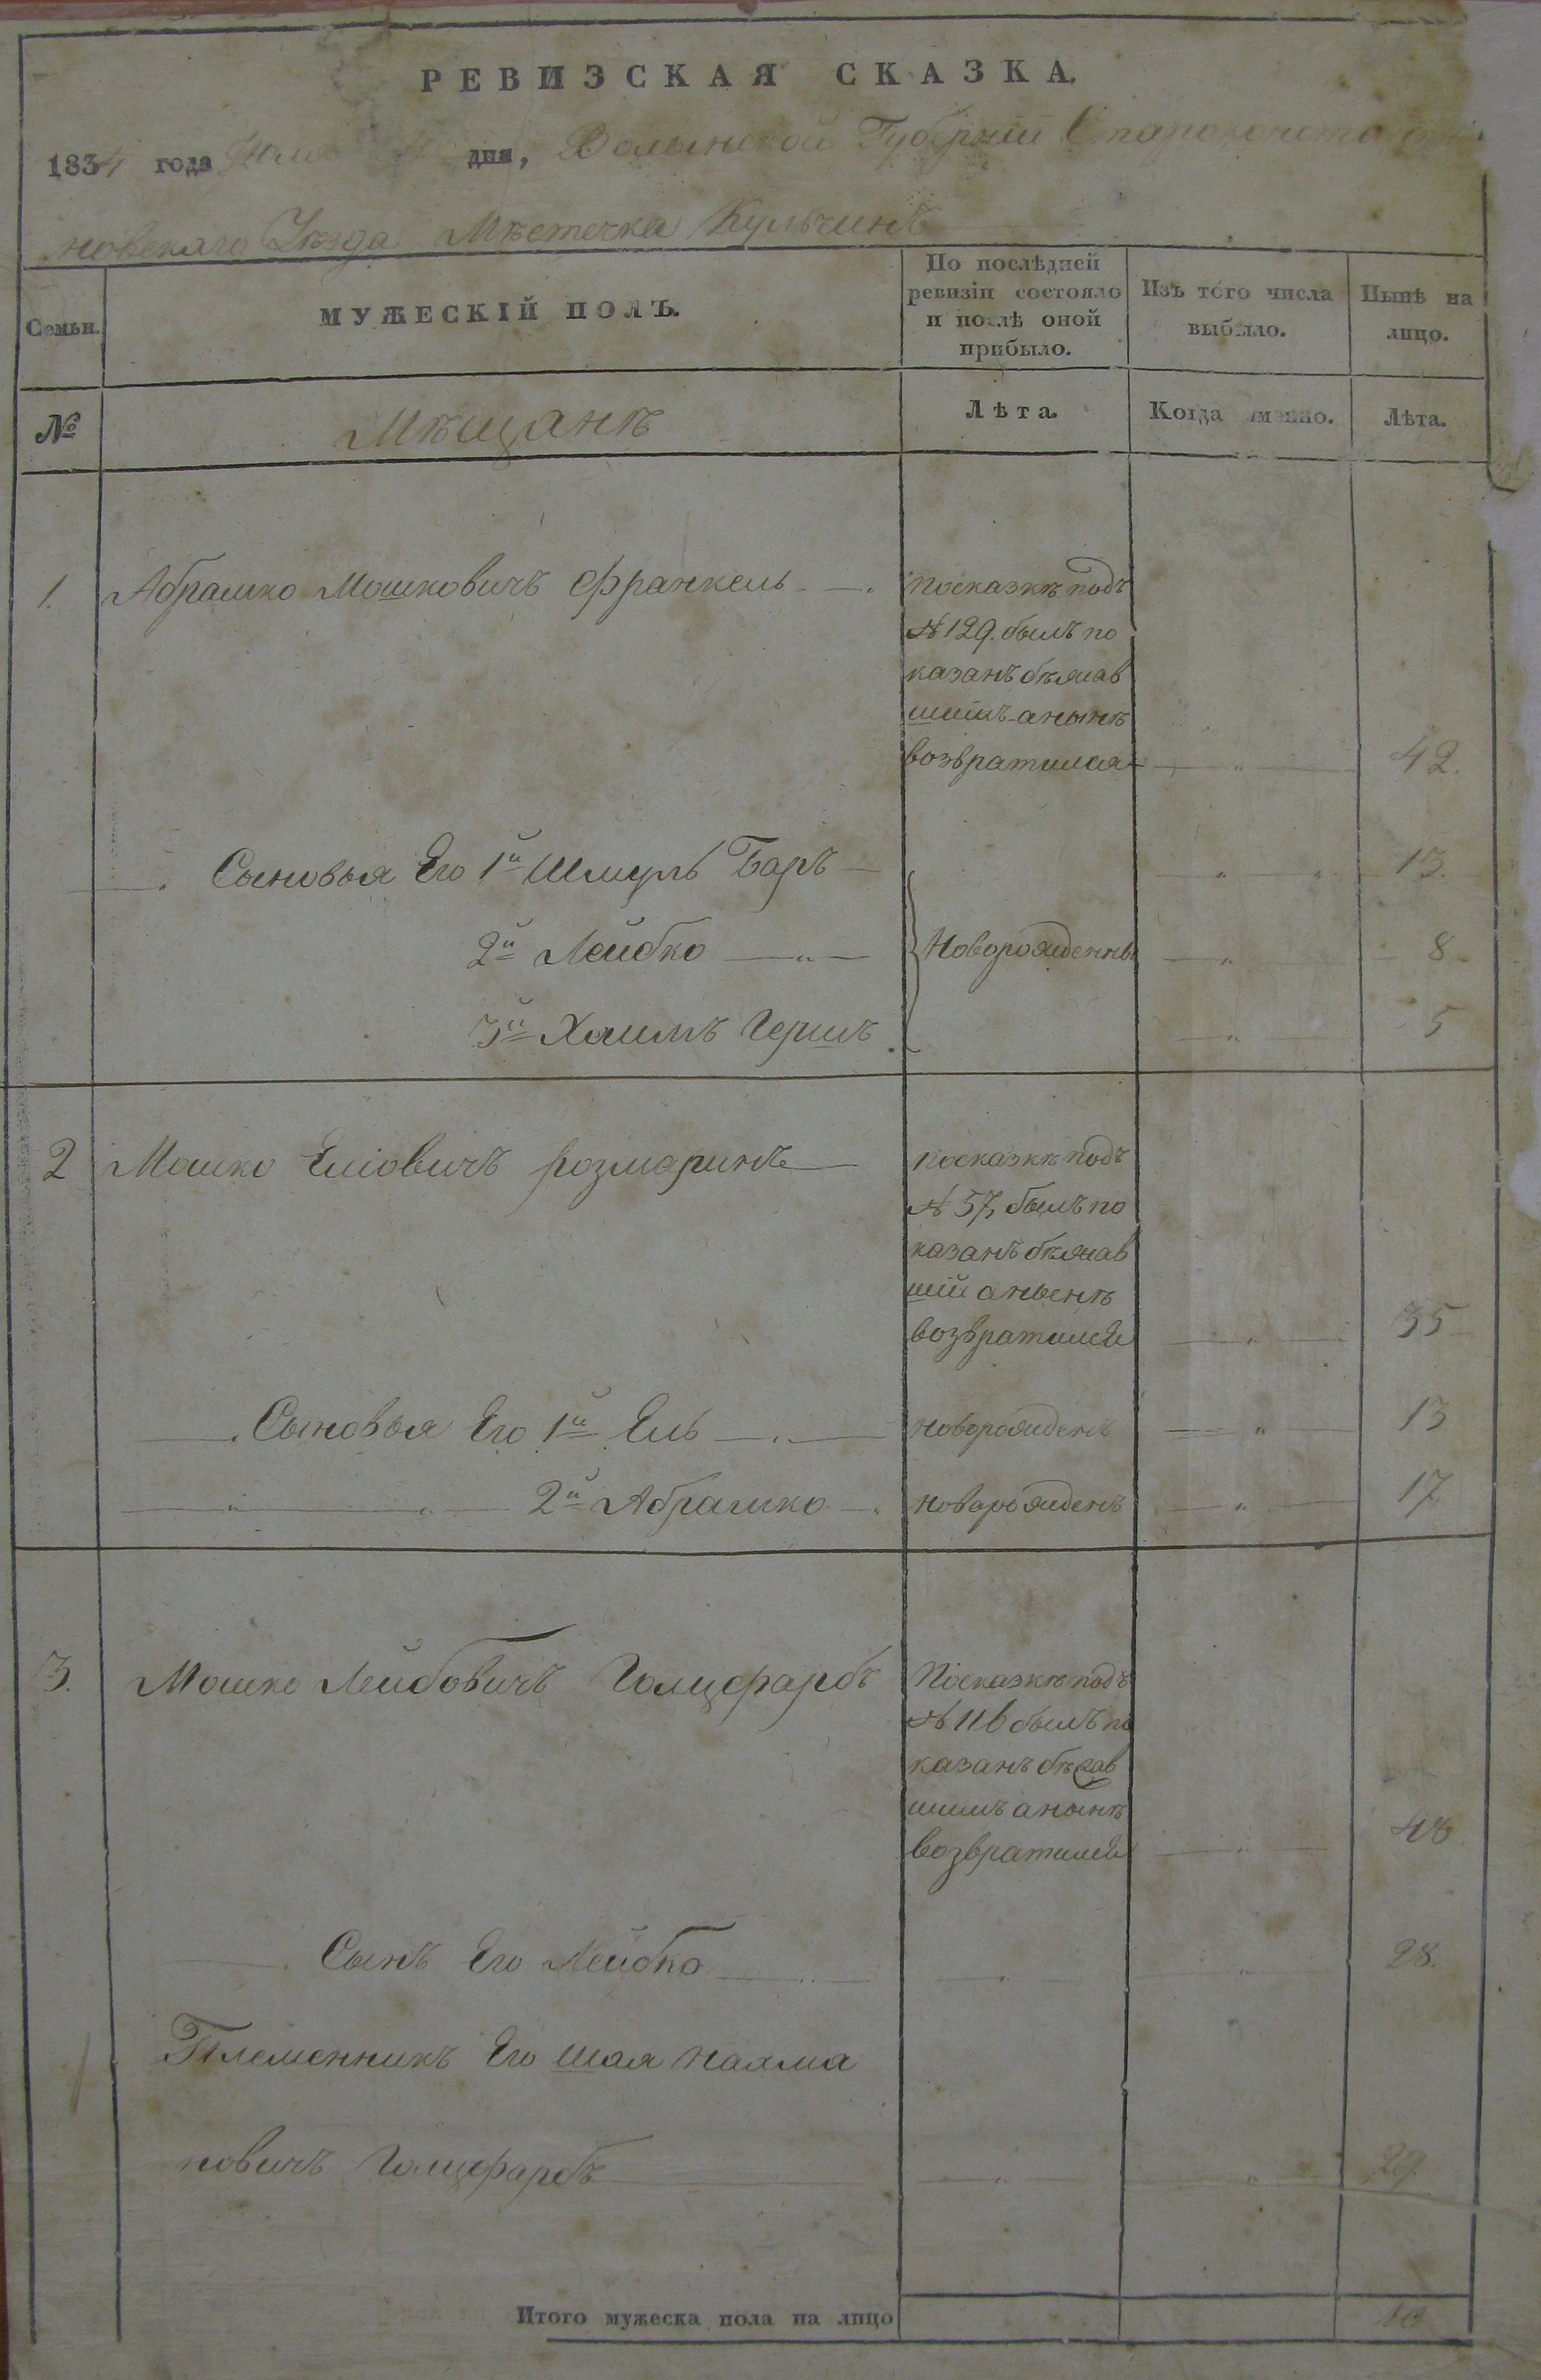 РЕВИЗСКАЯ СКАЗКА.
1834 года дня, Волынской Губерніи Староконстанти
новскаго Уѣзда Мѣстечка Кульчинъ
Семьи.
МУЖЕСКІЙ ПОЛЪ.
По послѣдней
ревизіи состояло
и послѣ оной
прибыло.
Изъ того числа
выбыло.
Нынѣ на
лицо.
№
Мѣщанѣ
Лѣта.
Когда именно.
Лѣта.
1. Абрамко Мошковичъ Франкель
посказкѣ подъ
№ 129. былъ по
казанъ бѣжав
шимъ анынѣ
возвратился 42.
Сыновья Его 1й Шмуль Баръ 13.
2й Лейбко Новорожденны 8
3й Хаимъ Гершъ 5
2 Мошко Еліовичъ розмаринъ
посказкѣ подъ
№ 57, былъ по
казанъ бѣжав
шій анынѣ
возвратился 35
Сыновья Его 1й Ель новорожденъ 13
2й Абрамко новорожденъ 17
3. Мошко Лейбовичъ Голцфарбъ
Посказкѣ подъ
№ 116 былъ по
казанъ бѣжав
шимъ анынѣ
возвратился 48
Сынъ Его Лейбко 28.
Племенникъ Его Шая Нахма
новичъ Голцфарбъ 29.
Итого мужеска пола на лицо 10